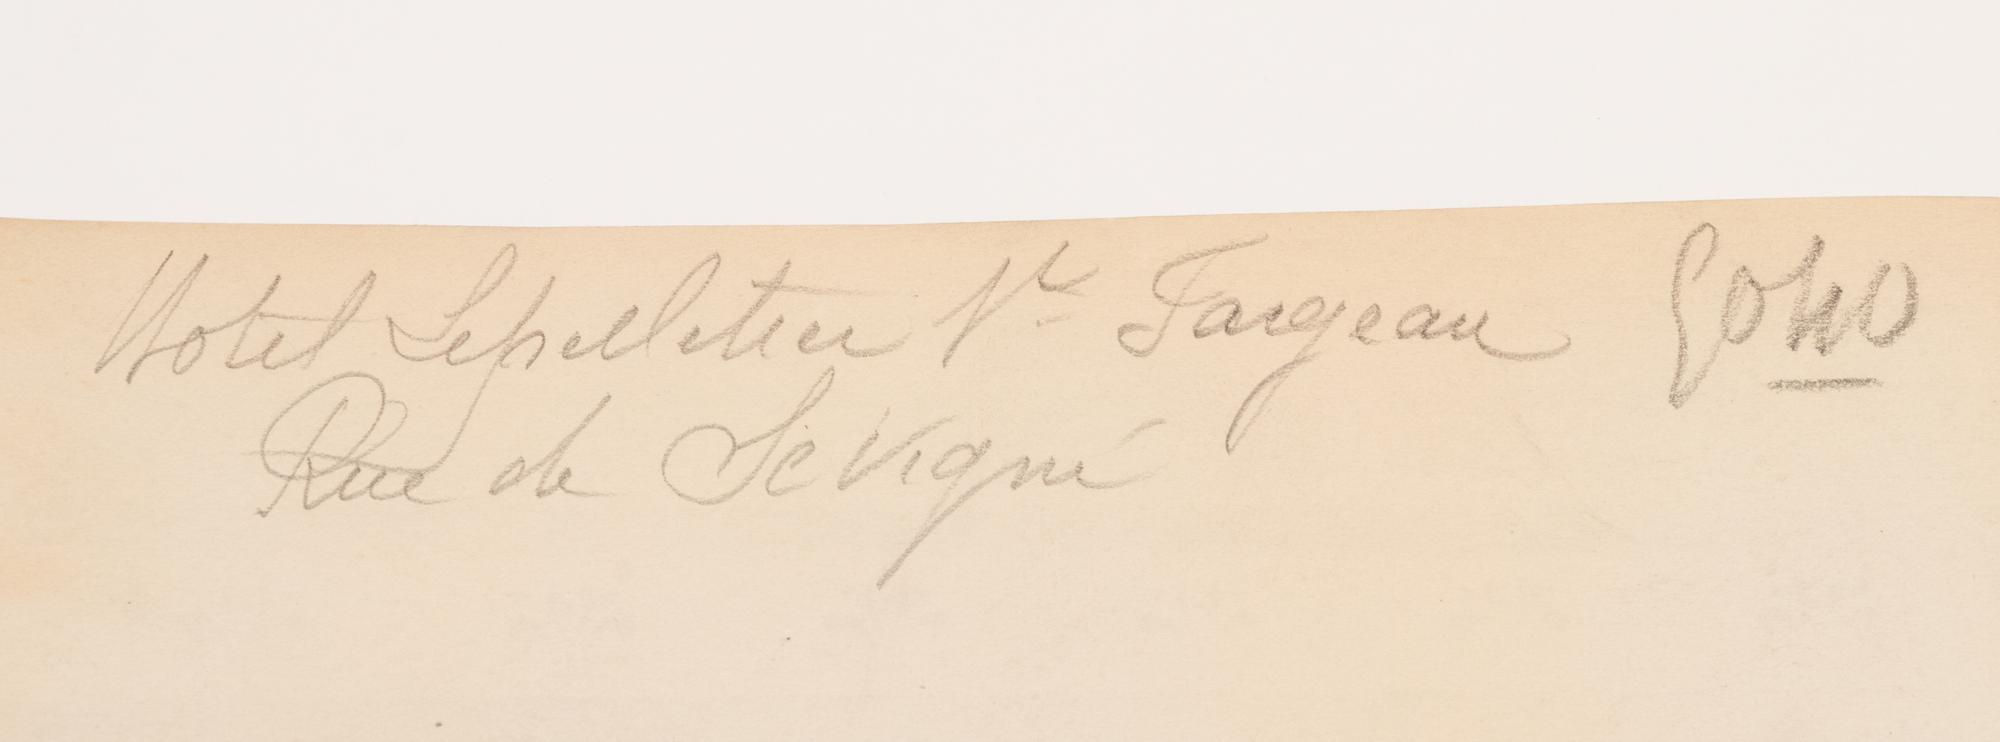 Hotel Lepelletier St Fargeau
Rue de Sevigné